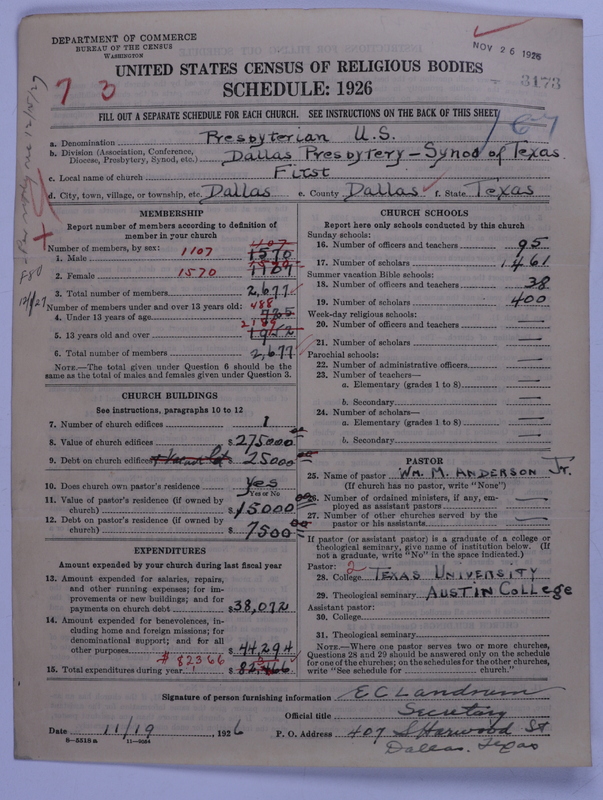 DEPARTMENT OF COMMERCE
BUREAU OF THE CENSUS
WASHINGTON
NOV 26 1926
3173
7 3
UNITED STATES CENSUS OF RELIGIOUS BODIES
SCHEDULE: 1926
FILL OUT A SEPARATE SCHEDULE FOR EACH CHURCH. SEE INSTRUCTIONS ON THE BACK OF THIS SHEET
167
a. Denomination Presbyterian U.S.
b. Division (Association, Conference, Diocese, Presbytery, Synod, etc.) Dallas Presbytery - Synod of Texas
c. Local name of church First
d. City, town, village, or township, etc. Dallas e. County Dallas f. State Texas
MEMBERSHIP
Report number of members according to definition of
member in your church
Number of members, by sex:
1107
1. Male 1107 1570
2. Female 1570 1570
3. Total number of members 2,677
Number of members under and over 13 years old:
4. Under 13 years of age 488
5. 13 years old and over 2189
6. Total number of members 2,677
NOTE.—The total given under Question 6 should be the
same as the total of males and females given under Question 3.
CHURCH BUILDINGS
See instructions, paragraphs 10 to 12
7. Number of church edifices 1
8. Value of church edifices $275000 00
9. Debt on church edifices & Vacant Lot $25000 00
10. Does church own pastor's residence Yes
Yes or No
11. Value of pastor's residence (if owned by
church) $15000 00
12. Debt on pastor's residence (if owned by
church) $7500 00
EXPENDITURES
Amount expended by your church during last fiscal year
13. Amount expended for salaries, repairs,
and other running expenses; for im-
provements or new buildings; and for
payments on church debt $38,072
14. Amount expended for benevolences, in-
cluding home and foreign missions; for
denominational support; and for all
other purposes $44,294
# 82366
15. Total expenditures during year $82,466
CHURCH SCHOOLS
Report here only schools conducted by this church
Sunday schools:
16. Number of officers and teachers 95
17. Number of scholars 1,461
Summer vacation Bible schools:
18. Number of officers and teachers 38
19. Number of scholars 400
Week-day religious schools:
20. Number of officers and teachers —
21. Number of scholars —
Parochial schools:
22. Number of administrative officers —
23. Number of teachers—
a. Elementary (grades 1 to 8) —
b. Secondary —
24. Number of scholars—
a. Elementary (grades 1 to 8) —
b. Secondary —
PASTOR
25. Name of pastor Wm. M. Anderson Jr.
(If church has no pastor, write "None")
26. Number of ordained ministers, if any, em-
ployed as assistant pastors —
27. Number of other churches served by the
pastor or his assistants —
If pastor (or assistant pastor) is a graduate of a college or
theological seminary, give name of institution below. (If
not a graduate, write "No" in the space indicated.)
Pastor: 2
28. College Texas University
29. Theological seminary Austin College
Assistant pastor:
30. College
31. Theological seminary
NOTE.—Where one pastor serves two or more churches,
Questions 28 and 29 should be answered only on the schedule
for one of the churches; on the schedules for the other churches,
write "See schedule for ______ church."
Signature of person furnishing information E C Landrum
Official title Secretary
Date 11/19, 1926 P. O. Address 407 S Harwood St
Dallas, Texas
8—5518a 11—9084